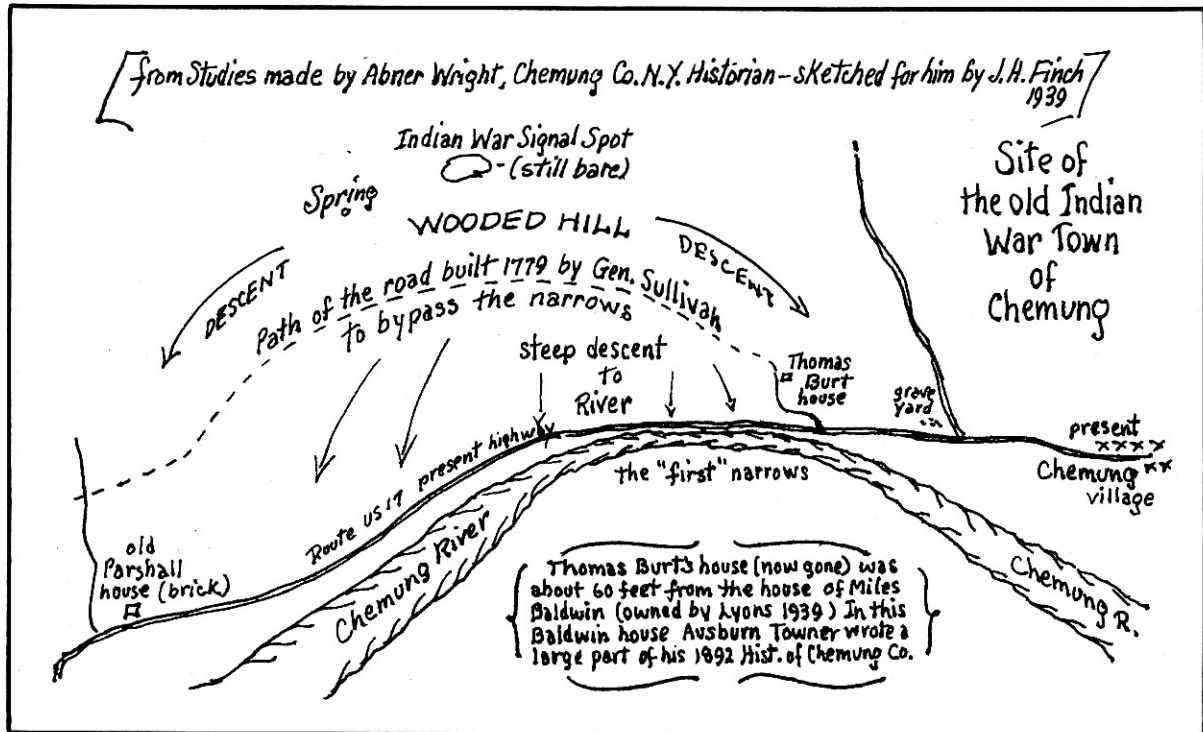 from Studies made by Abner Wright, Chemung Co. N.Y. Historian - sketched for him by J.H. Finch
1939
Indian War Signal Spot
- (still bare)
Spring
WOODED HILL
DESCENT
DESCENT
Path of the road built 1779 by Gen. Sullivan
to bypass the narrows
Site of
the old Indian
War Town
of
Chemung
steep descent
to
River
Thomas
Burt
house
grave
yard
present
xxxx
Chemung xx
village
the "first" narrows
Route US 17 present highway
Chemung River
old
Parshall
house (brick)
Chemung R.
Thomas Burt's house (now gone) was
about 60 feet from the house of Miles
Baldwin (owned by Lyons 1939) In this
Baldwin house Ausburn Towner wrote a
large part of his 1892 Hist. of Chemung Co.